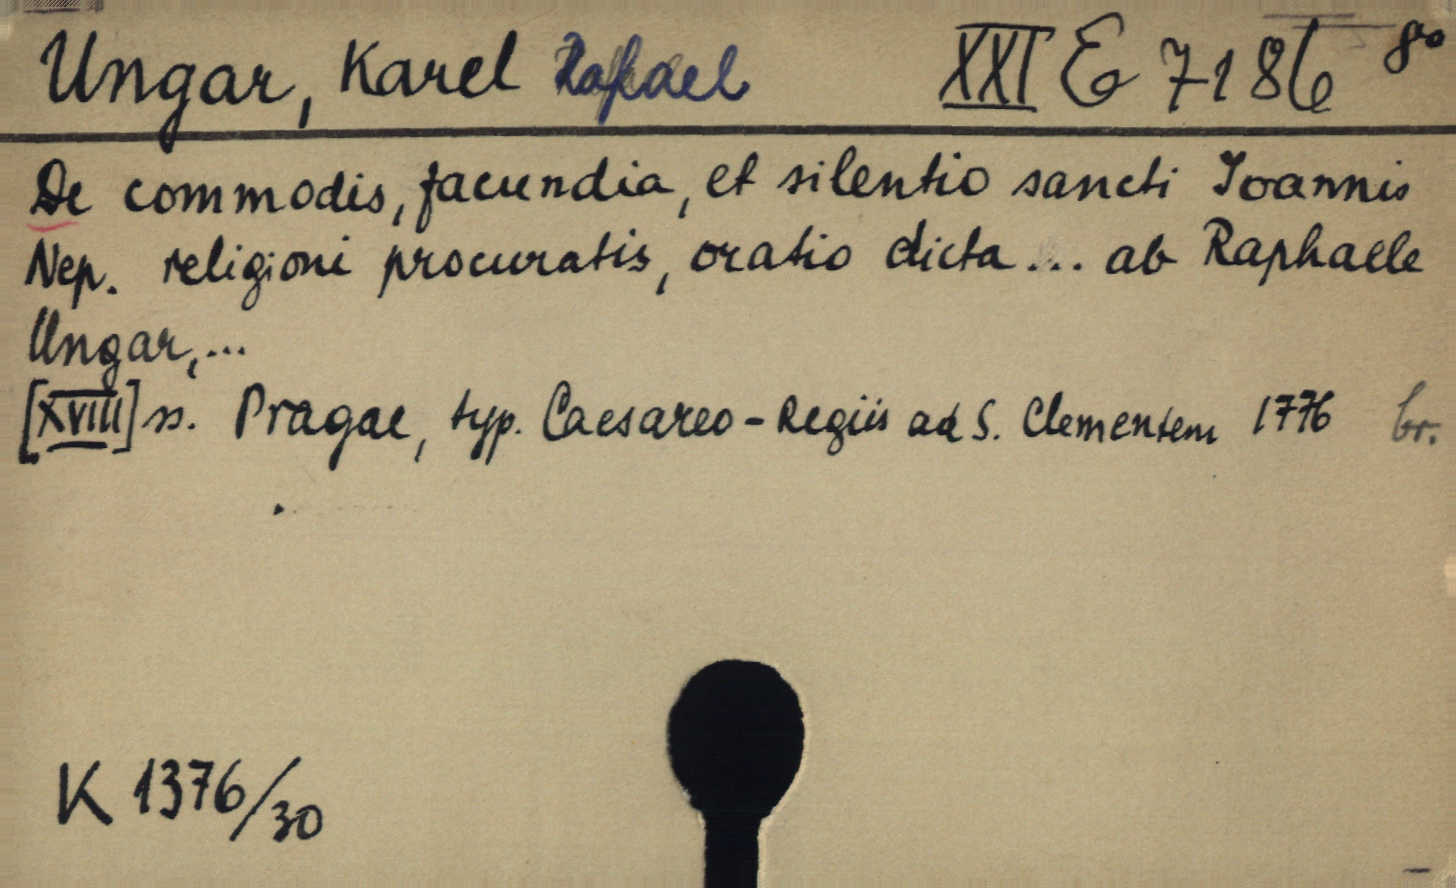 Ungar, Karel Rafael XXI E 7186 8vo
De commodis, facundia, et silentio sancti Ioannis
Nep. religioni procuratis, oratio dicta ... ab Raphaele
Ungar, ...
[XVIII] ss. Pragae, typ. Caesareo-Regiis ad S. Clementem 1776 br.
K 1376/30